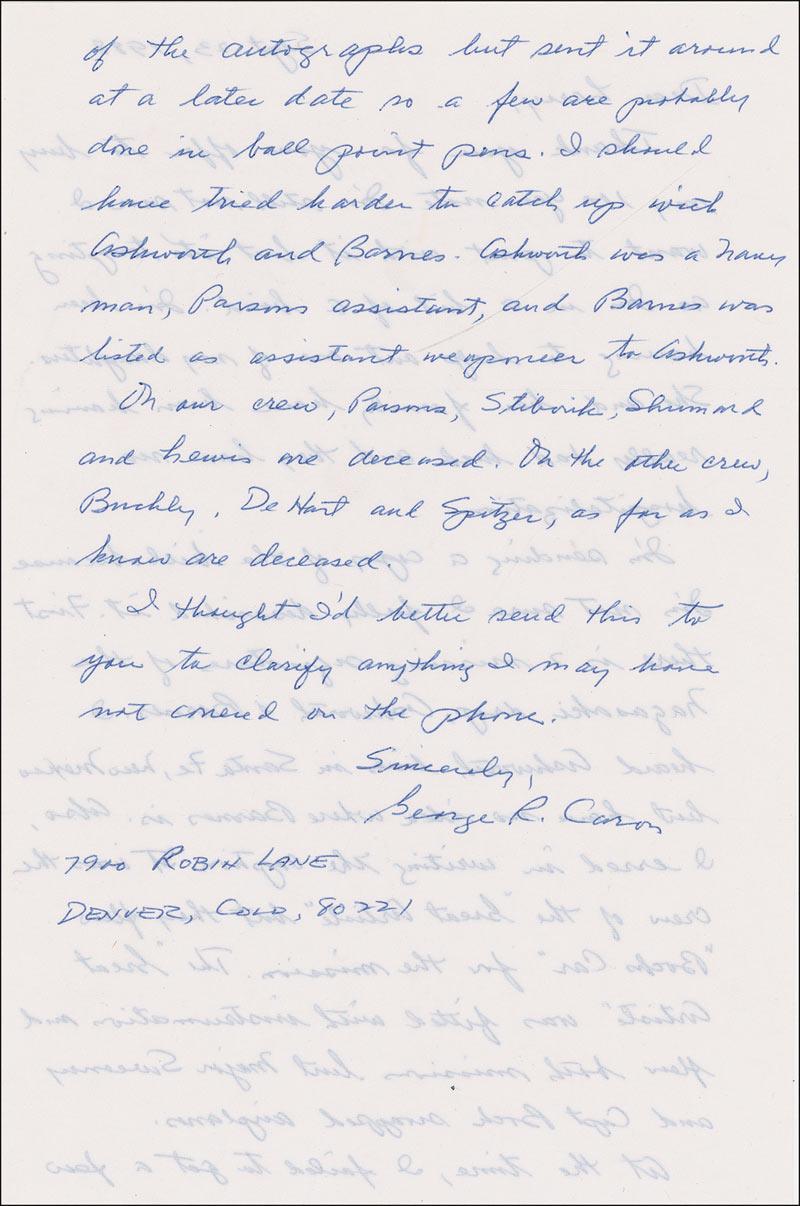 of the autographs but sent it around
at a later date so a few are probably
done in ball point pens. I should
have tried harder to catch up with
Ashworth and Barnes. Ashworth was a Navy
man, Parsons assistant, and Barnes was
listed as assistant weaponeer to Ashworth.
On our crew, Parsons, Stiborik, Shumard
and Lewis are deceased. On the other crew,
Buckley, De Hart and Spitzer, as far as I
know are deceased.
I thought I'd better send this to
you to clarify anything I may have
not covered on the phone.
Sincerely,
George R. Caron
7900 ROBIN LANE
DENVER, COLO, 80221